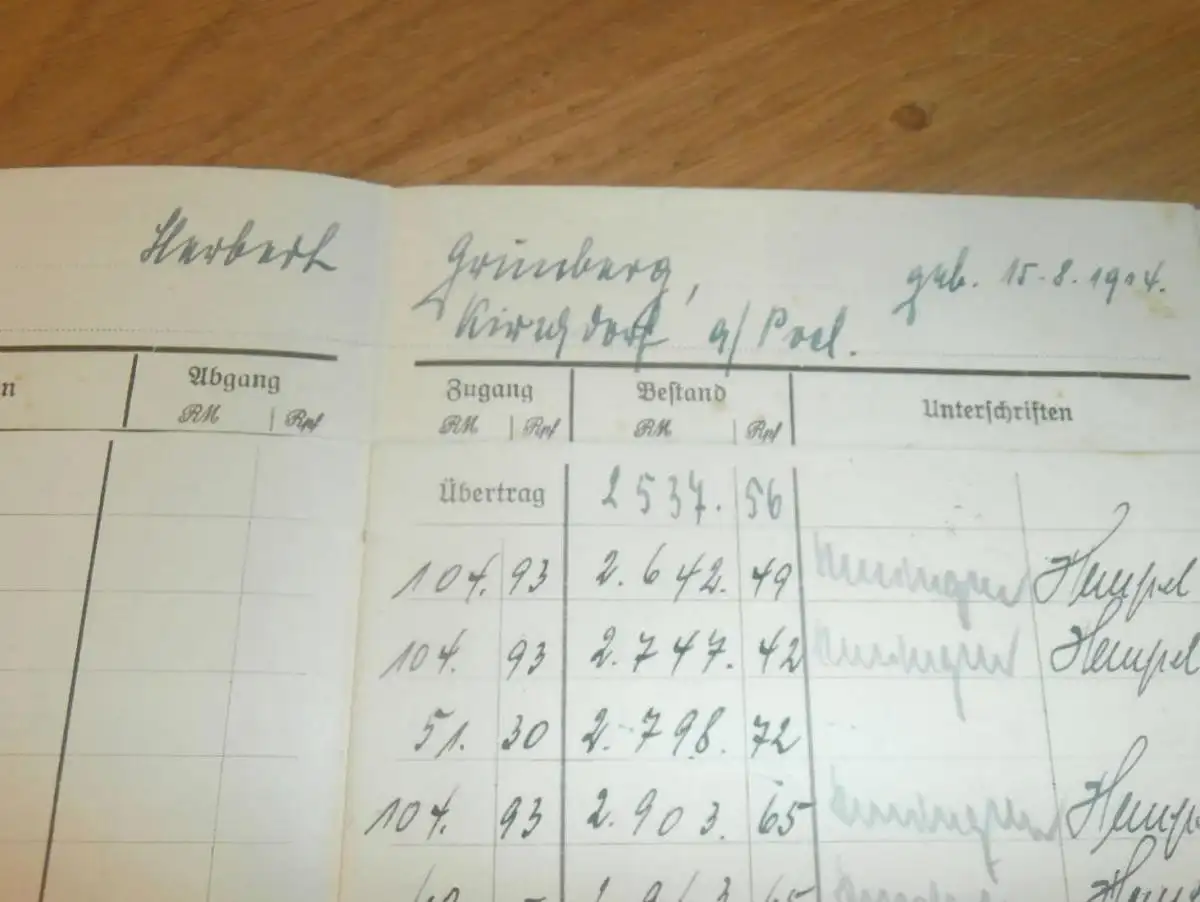 Herbert Grünberg, geb. 15.8.1914.
Kirchdorf a/Poel.
n Abgang Zugang Bestand Unterschriften
RM Rpf RM Rpf RM Rpf
Übertrag 2537. 56
104. 93 2.642. 49 Hempel
104. 93 2.747. 42 Hempel
51. 30 2.798. 72
104. 93 2.903. 65 Hempel